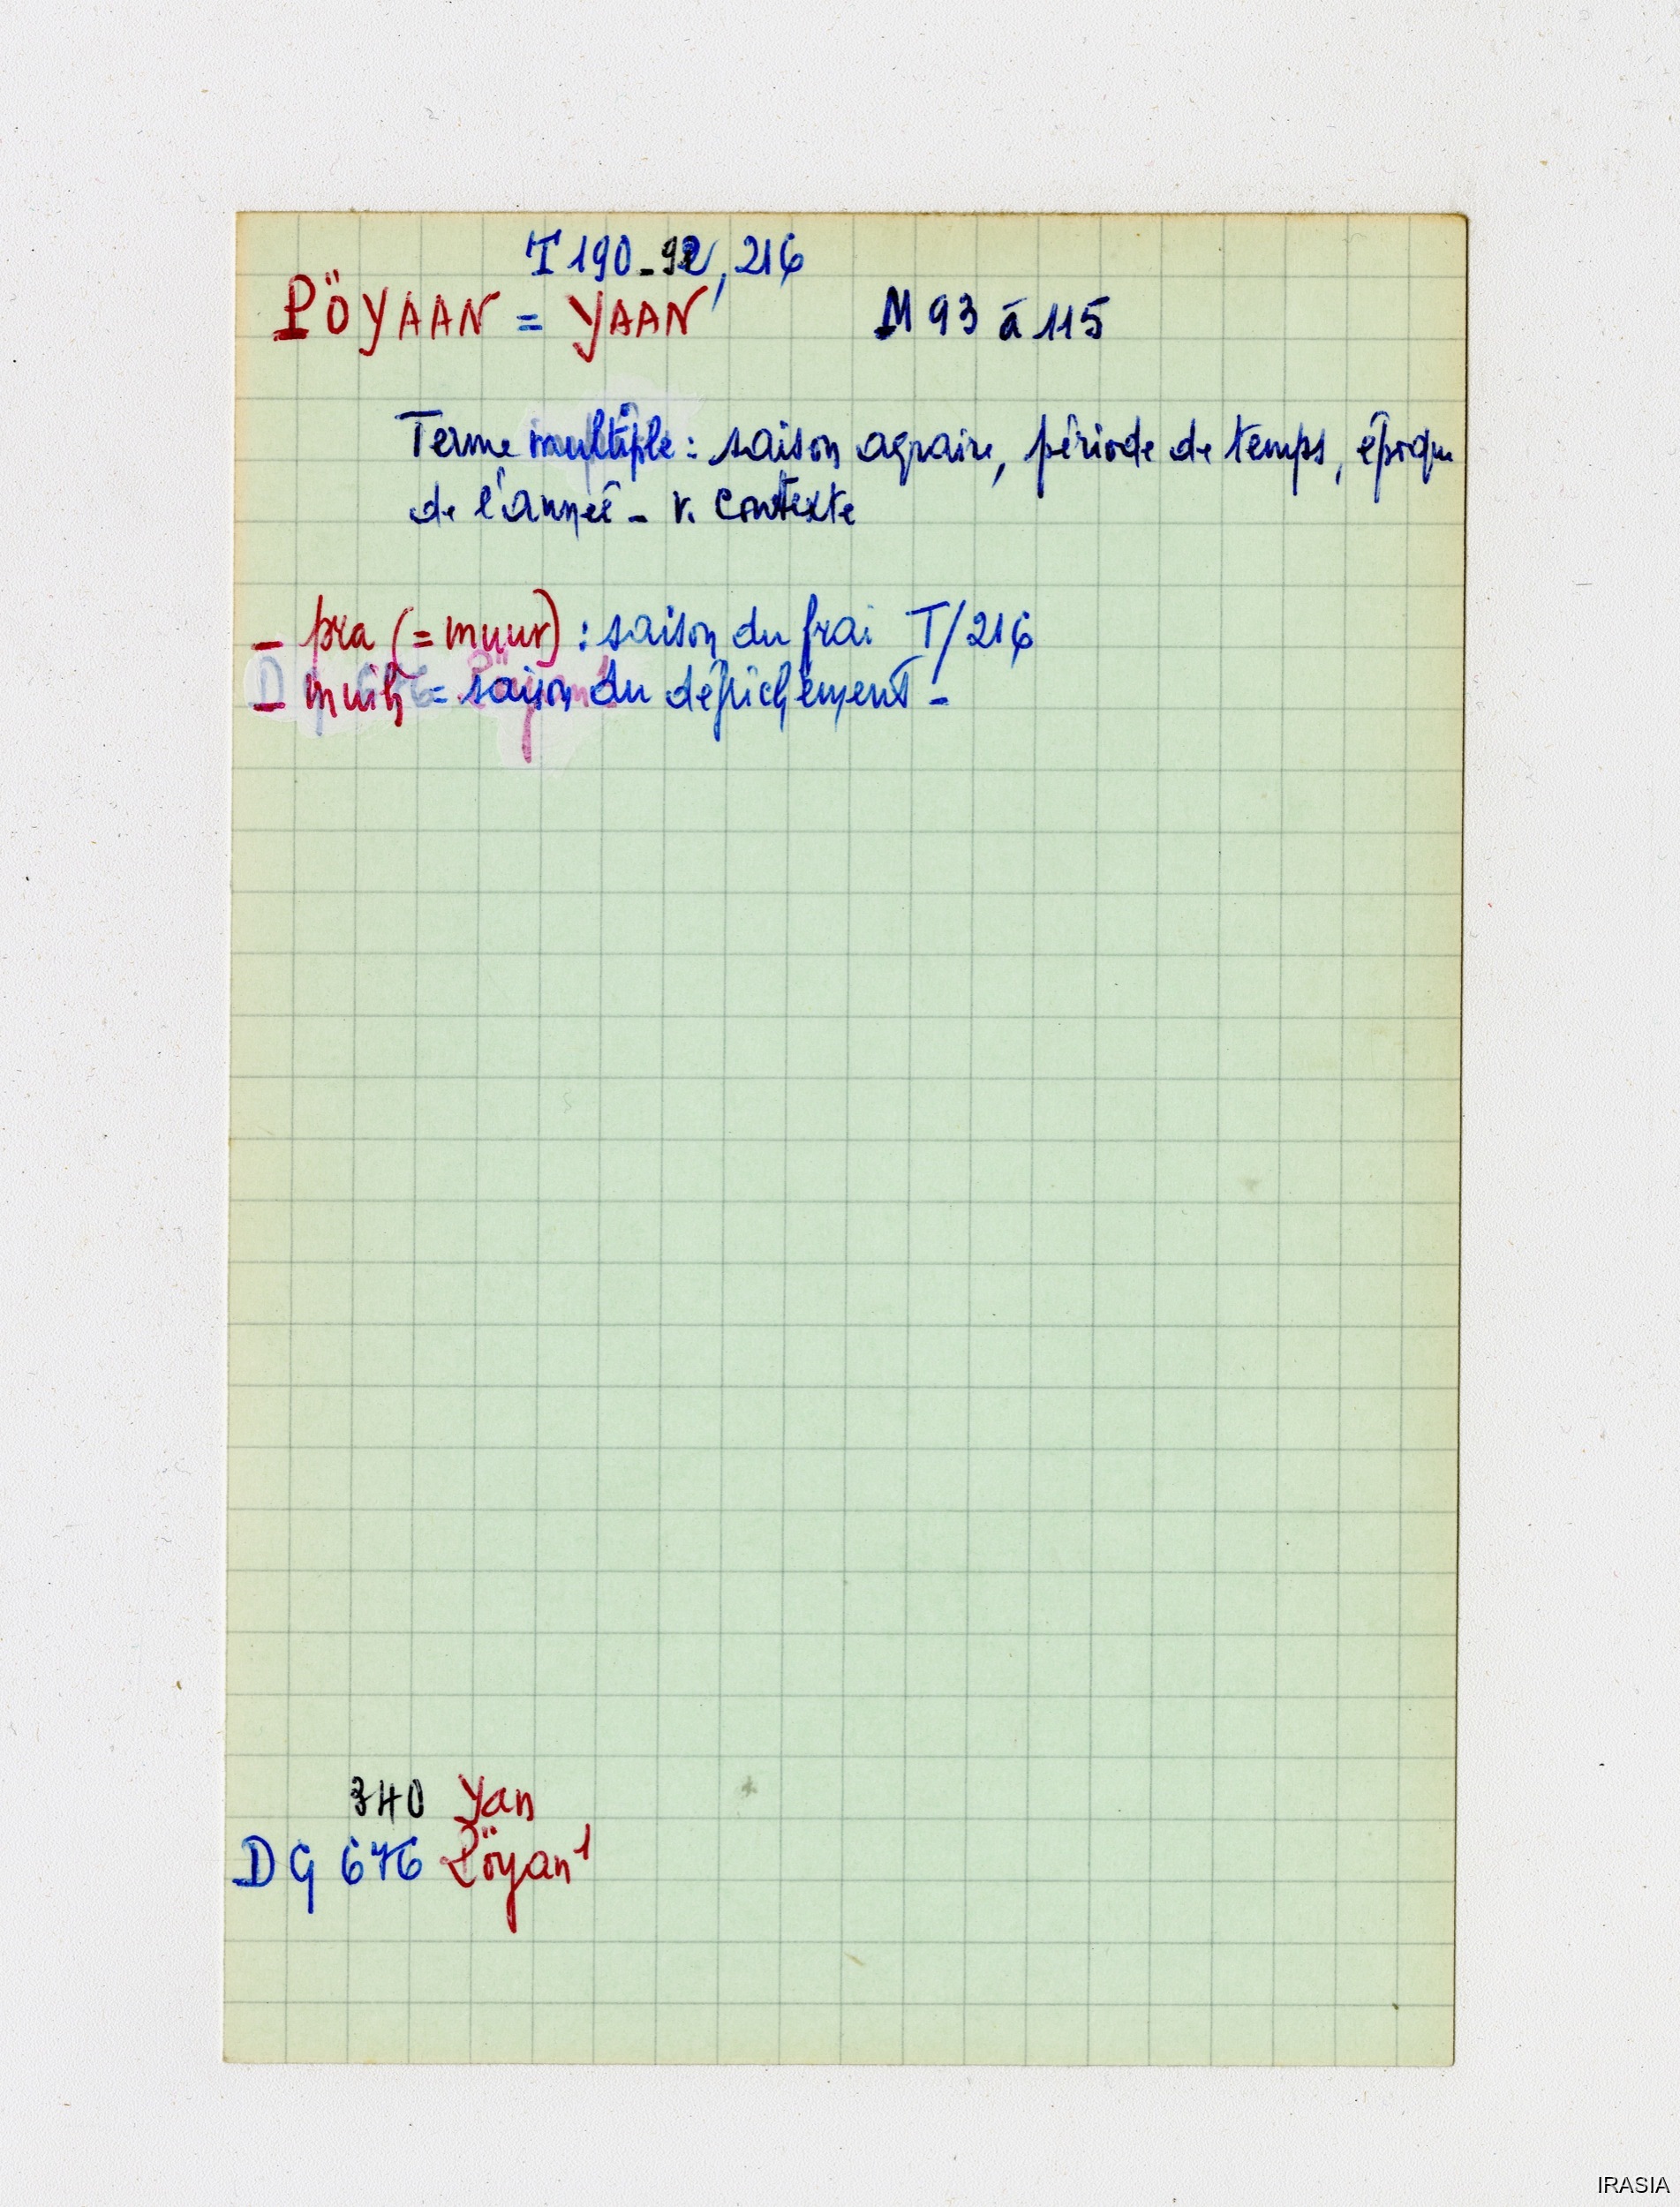 T 190-92, 216
PÖYAAN = YAAN M 93 à 115
Terme multiple : saison agraire, période de temps, époque
de l'année - v. contexte
- pra (= muur) : saison du frai T/216
- muih = saison du défrichement -
340 Yan
DG 676 Pöyan¹
IRASIA